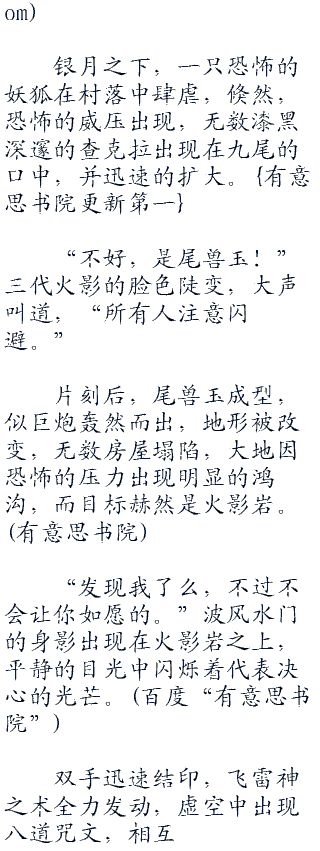 om)
银月之下，一只恐怖的
妖狐在村落中肆虐，倏然，
恐怖的威压出现，无数漆黑
深邃的查克拉出现在九尾的
口中，并迅速的扩大。{有意
思书院更新第一}
“不好，是尾兽玉！”
三代火影的脸色陡变，大声
叫道，“所有人注意闪
避。”
片刻后，尾兽玉成型，
似巨炮轰然而出，地形被改
变，无数房屋塌陷，大地因
恐怖的压力出现明显的鸿
沟，而目标赫然是火影岩。
(有意思书院)
“发现我了么，不过不
会让你如愿的。”波风水门
的身影出现在火影岩之上，
平静的目光中闪烁着代表决
心的光芒。(百度“有意思书
院”)
双手迅速结印，飞雷神
之术全力发动，虚空中出现
八道咒文，相互